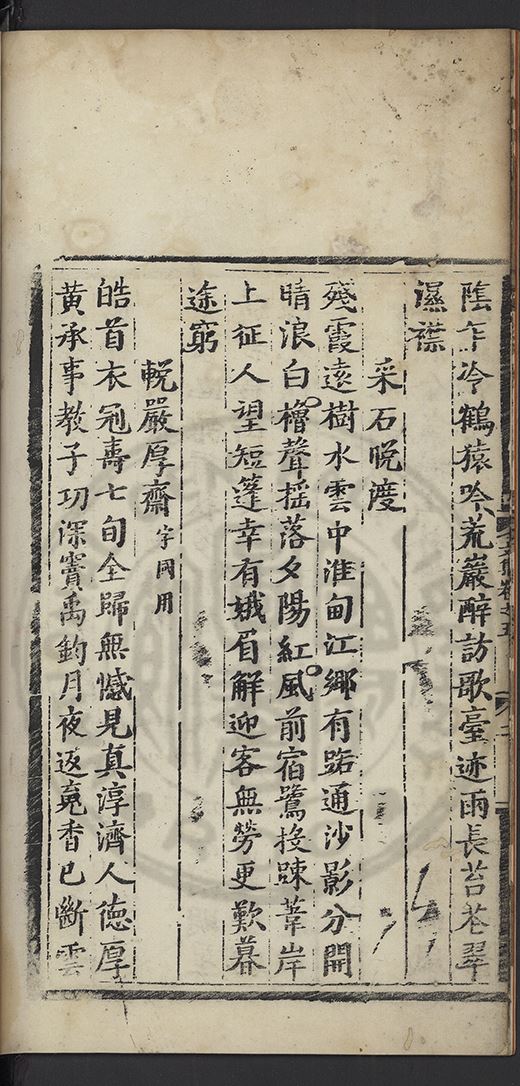 陰午冷鶴猿吟荒巖醉訪歌臺迹雨長苔花翠
濕襟
采石晚渡
殘霞遠樹水雲中淮甸江鄉有路通沙影分開
晴浪白櫓聲揺落夕陽紅風前宿鷺投踈葦岸
上征人望短篷幸有娥眉解迎客無勞更歎暮
途窮
輓嚴厚齋字國用
皓首衣冠壽七旬全歸無憾見真淳濟人德厚
黃承事教子功深竇禹鈞月夜返魂香已斷雲